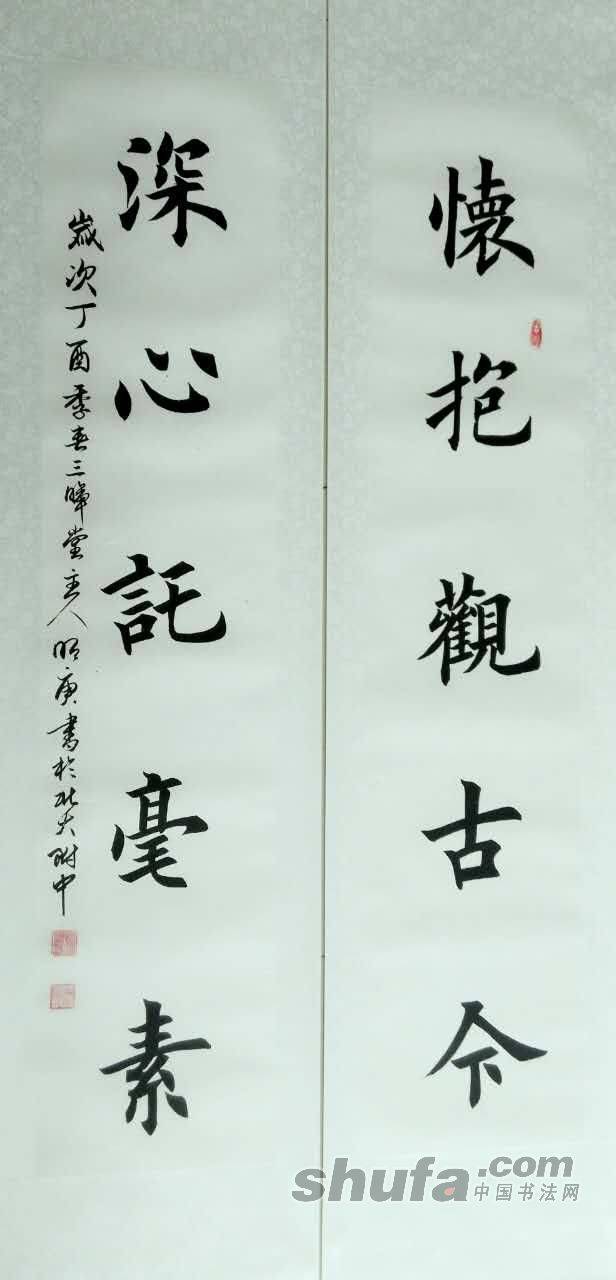 懐抱觀古今
深心託毫素
歲次丁酉季春三暉堂主人明庚書於北大附中
shufa.com
中国书法网